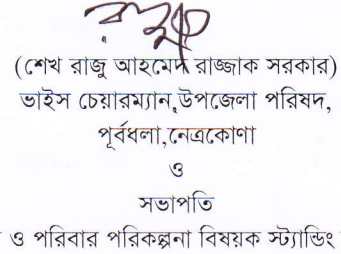 (শেখ রাজু আহমেদ রাজ্জাক সরকার)
ভাইস চেয়ারম্যান,উপজেলা পরিষদ,
পূর্বধলা,নেত্রকোণা
ও
সভাপতি
ও পরিবার পরিকল্পনা বিষয়ক স্ট্যান্ডিং